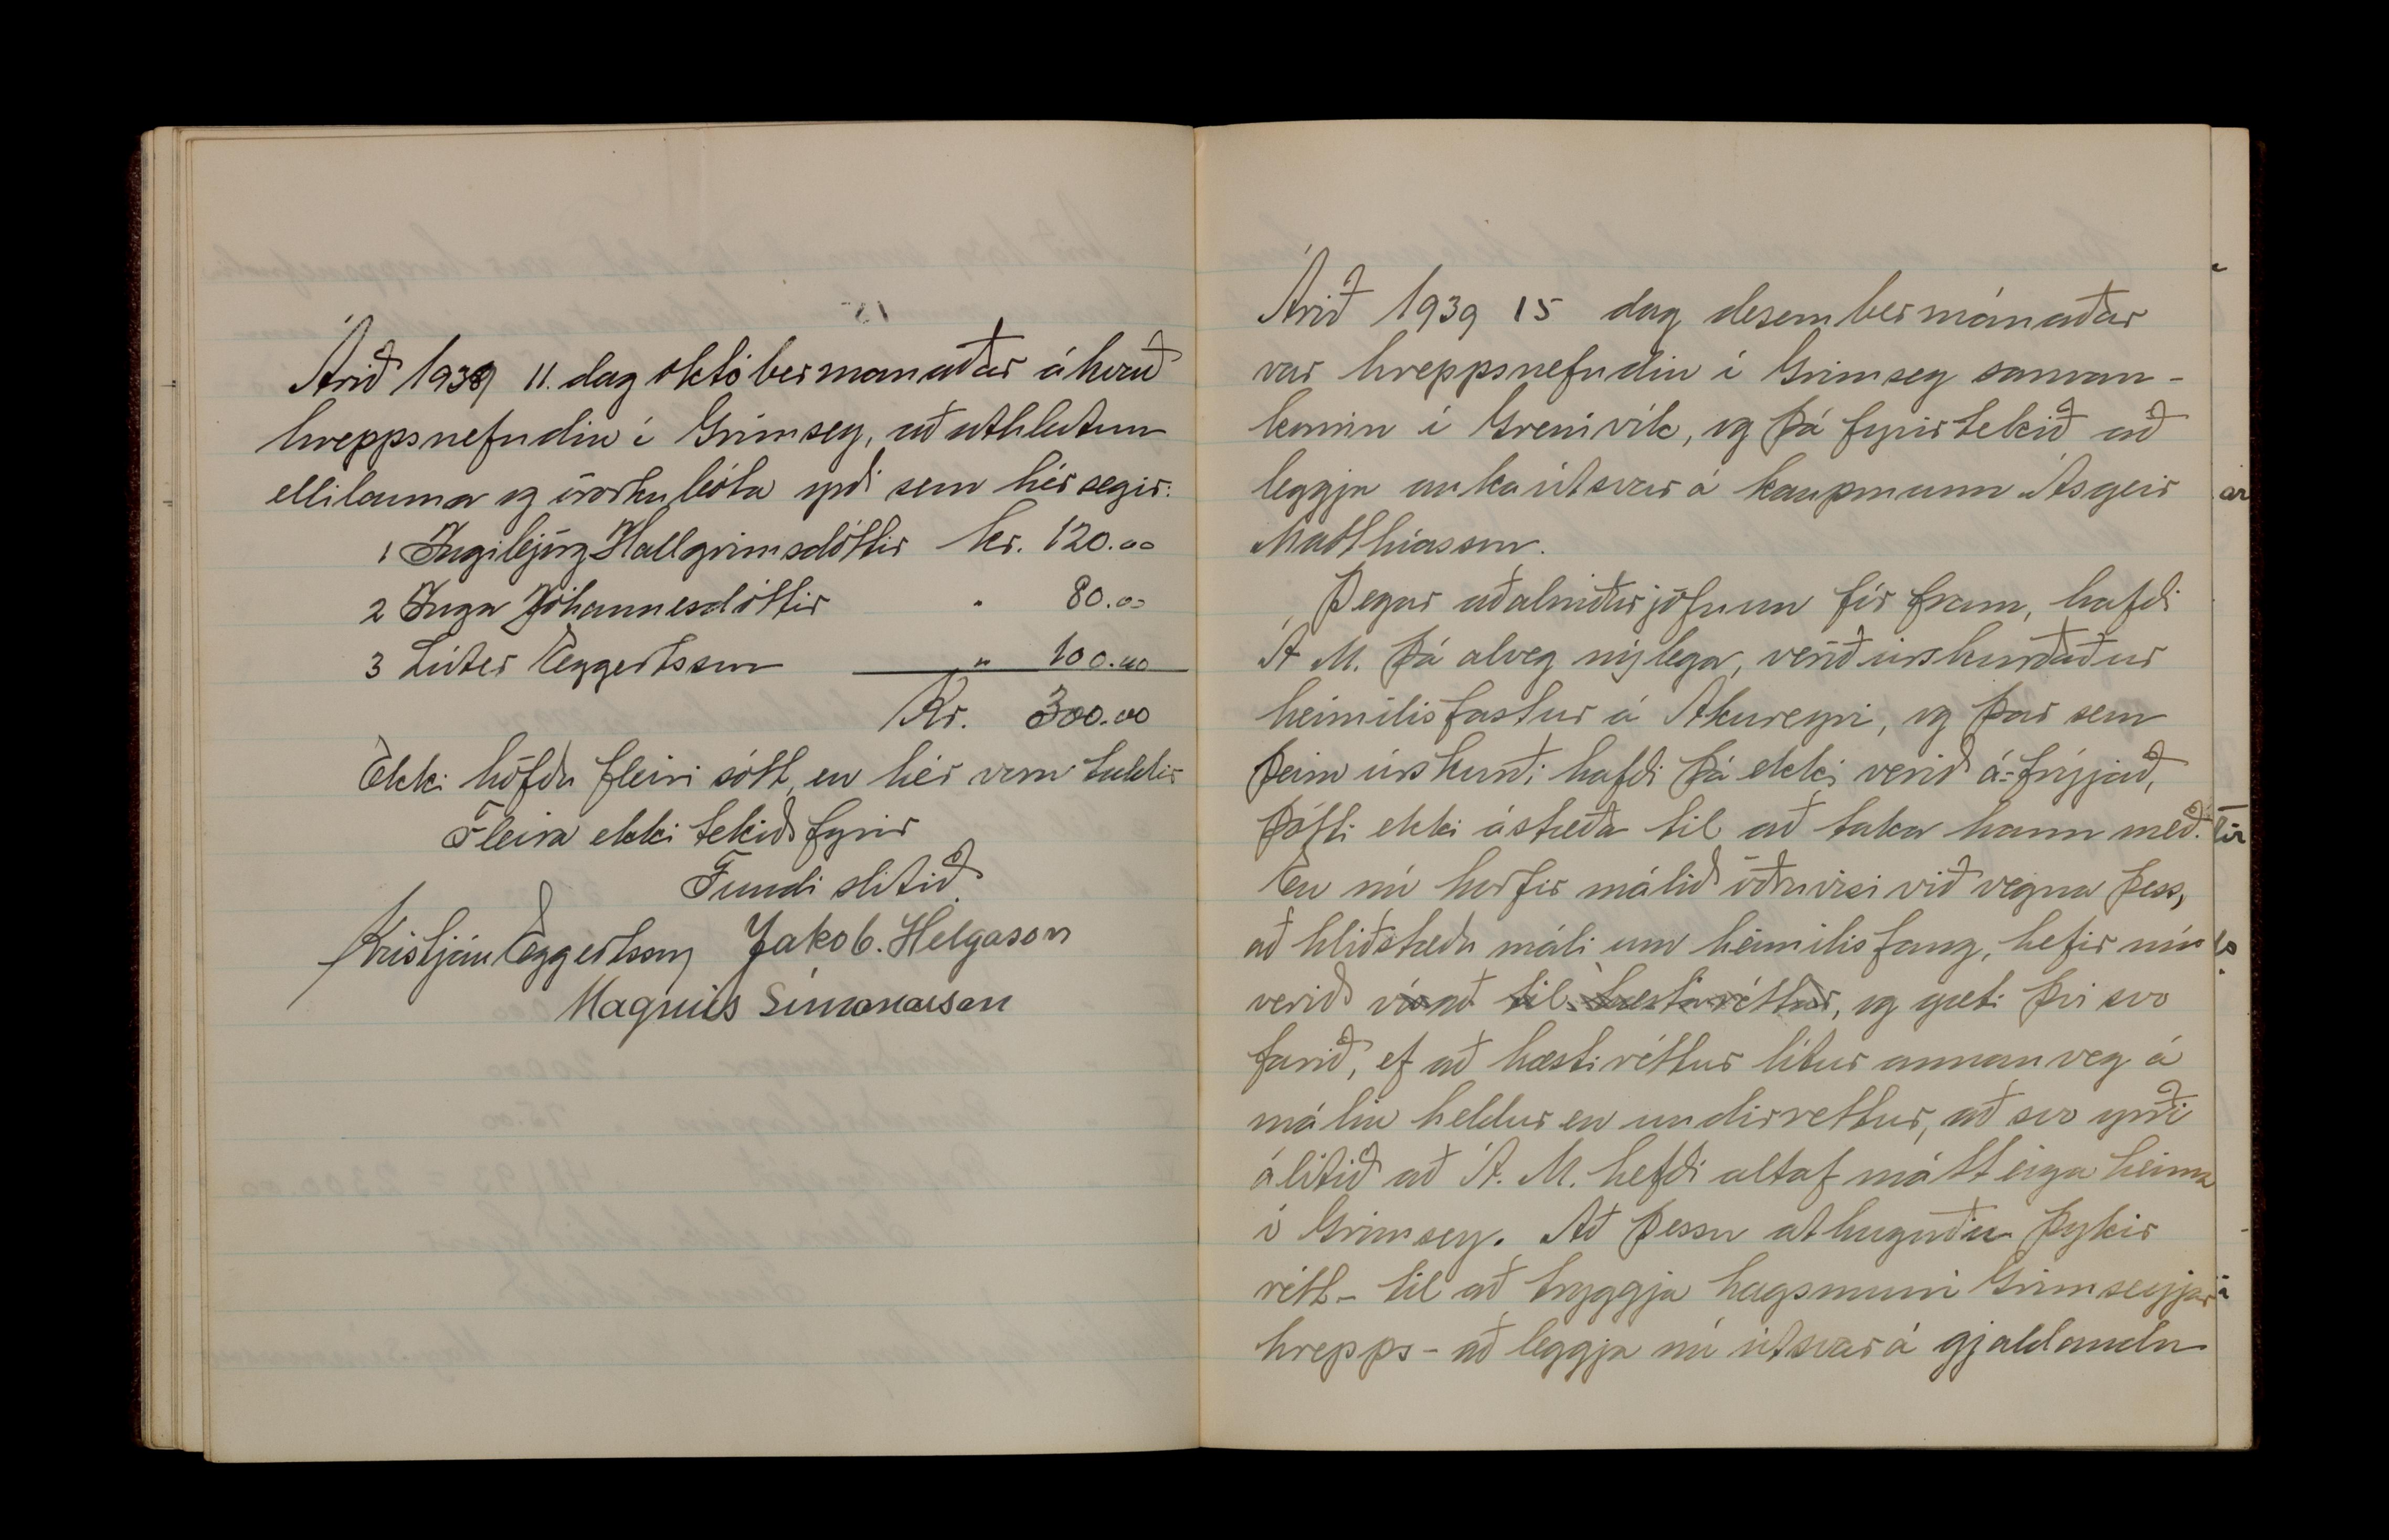 Árið 1939 11. dag októbermanaðar ákvað
hreppsnefndin í Grimsey, að uthlutun
ellilauna og örorkubóta yrði sem hér segir:
1 Ingibjörg Hallgrimsdóttir kr. 120.00
2 Inga Jóhannesdóttir " 80.00
3 Lúter Eggertsson " 100.00
Kr. 300.00
Ekki höfðu fleiri sótt, en hér veru taldir
Fleira ekki tekið fyrir
Fundi slitið.
Kristján Eggertsson Jakob. Helgason
Magnús Símonarson
Árið 1939 15 dag desembermánaðar
var hreppsnefndin í Grimsey saman-
komin í Grenivík, og þá fyrirtekið að
leggja aukaútsvar á kaupmann Ásgeir
Matthíasson.
Þegar aðalniðurjöfnun fór fram, hafði
Á M. þá alveg nýlega, verið úrskurðaður
heimilisfastur á Akureyri, og þar sem
þeim úrskurði hafði þá ekki verið á-frýjað,
þótti ekki ástæða til að taka hann með.
En nú horfir málið öðruvisi við vegna þess,
að hliðstæðu máli um heimilisfang, hefir nú
verið vísað til hæstaréttar, og gæti þvi svo
farið, ef að hæstiréttur lítur annanveg á
málin heldur en undirrettur, að svo yrði
álitið að Á. M. hefði altaf mátt eiga heima
í Grimsey. Að þessu athuguðu þykir
rétt - til að tryggja hagsmuni Grimseyjar
hrepps - að leggja nú útsvar á gjaldandu